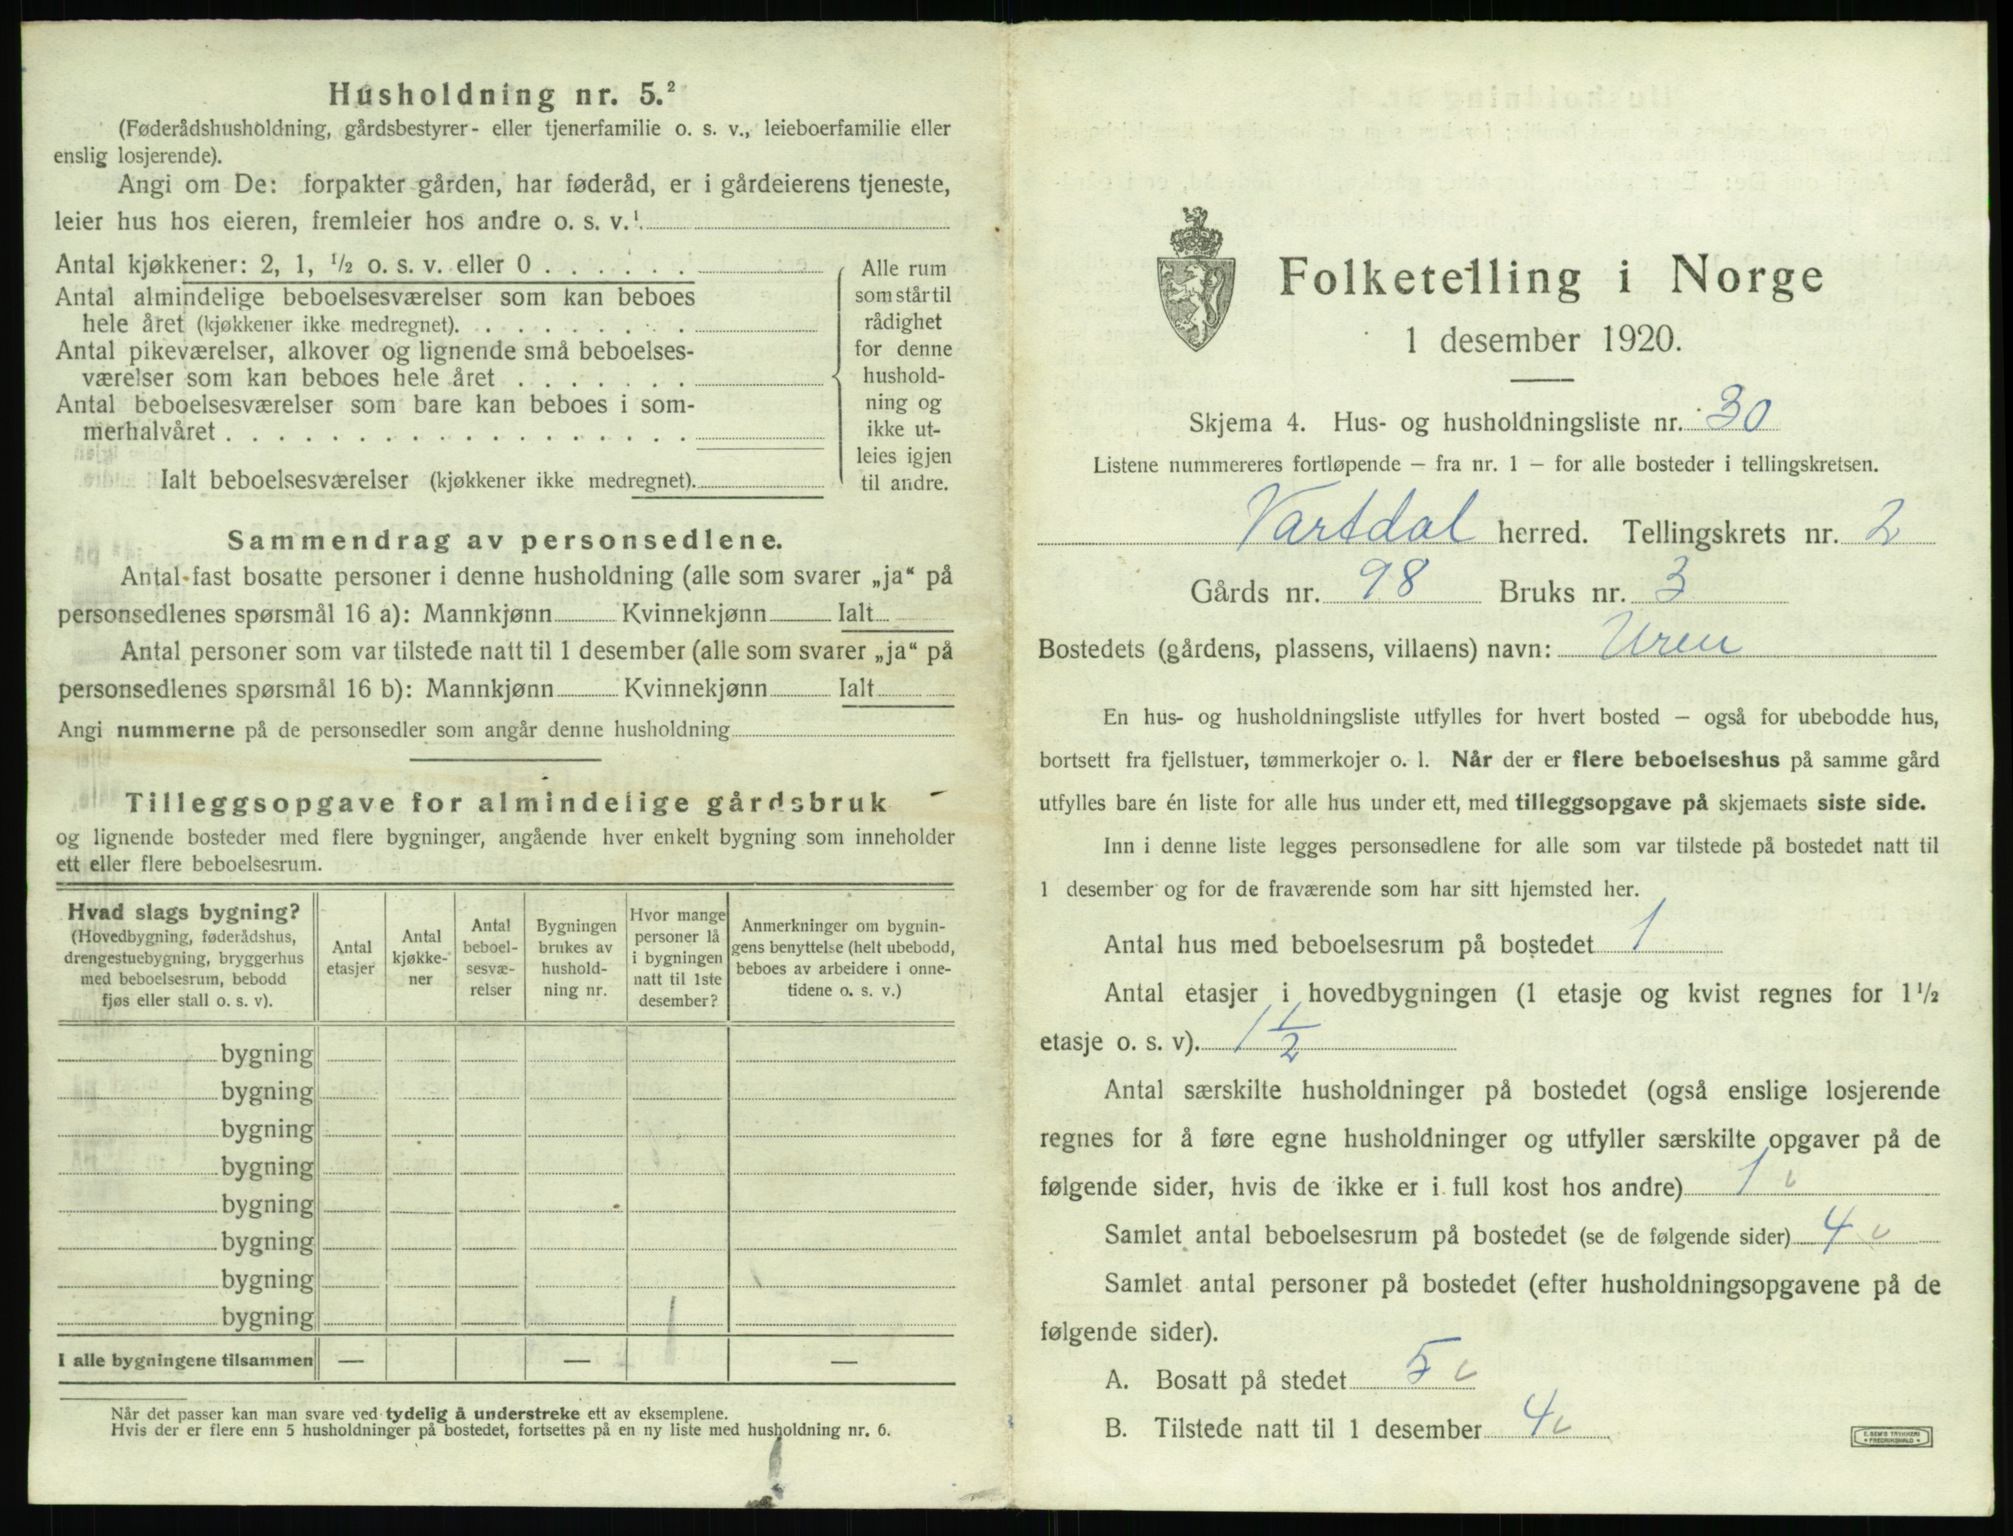 Husholdning nr. 5.²
(Føderådshusholdning, gårdsbestyrer- eller tjenerfamilie o. s. v., leieboerfamilie eller
enslig losjerende).
Angi om De: forpakter gården, har føderåd, er i gårdeierens tjeneste,
leier hus hos eieren, fremleier hos andre o. s. v.¹
Antal kjøkkener: 2, 1, ½ o. s. v. eller 0 . . . . . .
Antal almindelige beboelsesværelser som kan beboes
hele året (kjøkkener ikke medregnet). . . . . . . . .
Antal pikeværelser, alkover og lignende små beboelses-
værelser som kan beboes hele året . . . . . . .
Antal beboelsesværelser som bare kan beboes i som-
merhalvåret . . . . . . . . . . . . . . . . .
Ialt beboelsesværelser (kjøkkener ikke medregnet).
Alle rum
som står til
rådighet
for denne
hushold-
ning og
ikke ut-
leies igjen
til andre.
Sammendrag av personsedlene.
Antal fast bosatte personer i denne husholdning (alle som svarer „ja“ på
personsedlenes spørsmål 16 a): Mannkjønn Kvinnekjønn Ialt
Antal personer som var tilstede natt til 1 desember (alle som svarer „ja“ på
personsedlenes spørsmål 16 b): Mannkjønn Kvinnekjønn Ialt
Angi nummerne på de personsedler som angår denne husholdning
Tilleggsopgave for almindelige gårdsbruk
og lignende bosteder med flere bygninger, angående hver enkelt bygning som inneholder
ett eller flere beboelsesrum.
Hvad slags bygning?
(Hovedbygning, føderådshus,
drengestuebygning, bryggerhus
med beboelsesrum, bebodd
fjøs eller stall o. s. v).
Antal
etasjer
Antal
kjøkke-
ner
Antal
beboel-
sesvæ-
relser
Bygningen
brukes av
hushold-
ning nr.
Hvor mange
personer lå
i bygningen
natt til 1ste
desember?
Anmerkninger om bygnin-
gens benyttelse (helt ubebodd,
beboes av arbeidere i onne-
tidene o. s. v.)
bygning
bygning
bygning
bygning
bygning
bygning
bygning
bygning
I alle bygningene tilsammen — — —
Når det passer kan man svare ved tydelig å understreke ett av eksemplene.
Hvis der er flere enn 5 husholdninger på bostedet, fortsettes på en ny liste med husholdning nr. 6.
Folketelling i Norge
1 desember 1920.
Skjema 4. Hus- og husholdningsliste nr. 30
Listene nummereres fortløpende – fra nr. 1 – for alle bosteder i tellingskretsen.
Vartdal herred. Tellingskrets nr. 2
Gårds nr. 98 Bruks nr. 3
Bostedets (gårdens, plassens, villaens) navn: Uren
En hus- og husholdningsliste utfylles for hvert bosted – også for ubebodde hus,
bortsett fra fjellstuer, tømmerkojer o. l. Når der er flere beboelseshus på samme gård
utfylles bare én liste for alle hus under ett, med tilleggsopgave på skjemaets siste side.
Inn i denne liste legges personsedlene for alle som var tilstede på bostedet natt til
1 desember og for de fraværende som har sitt hjemsted her.
Antal hus med beboelsesrum på bostedet 1
Antal etasjer i hovedbygningen (1 etasje og kvist regnes for 1½
etasje o. s. v). 1½
Antal særskilte husholdninger på bostedet (også enslige losjerende
regnes for å føre egne husholdninger og utfyller særskilte opgaver på de
følgende sider, hvis de ikke er i full kost hos andre) 1
Samlet antal beboelsesrum på bostedet (se de følgende sider) 4
Samlet antal personer på bostedet (efter husholdningsopgavene på de
følgende sider).
A. Bosatt på stedet 5
B. Tilstede natt til 1 desember 4
E. SEM'S TRYKKERI
FREDRIKSHALD